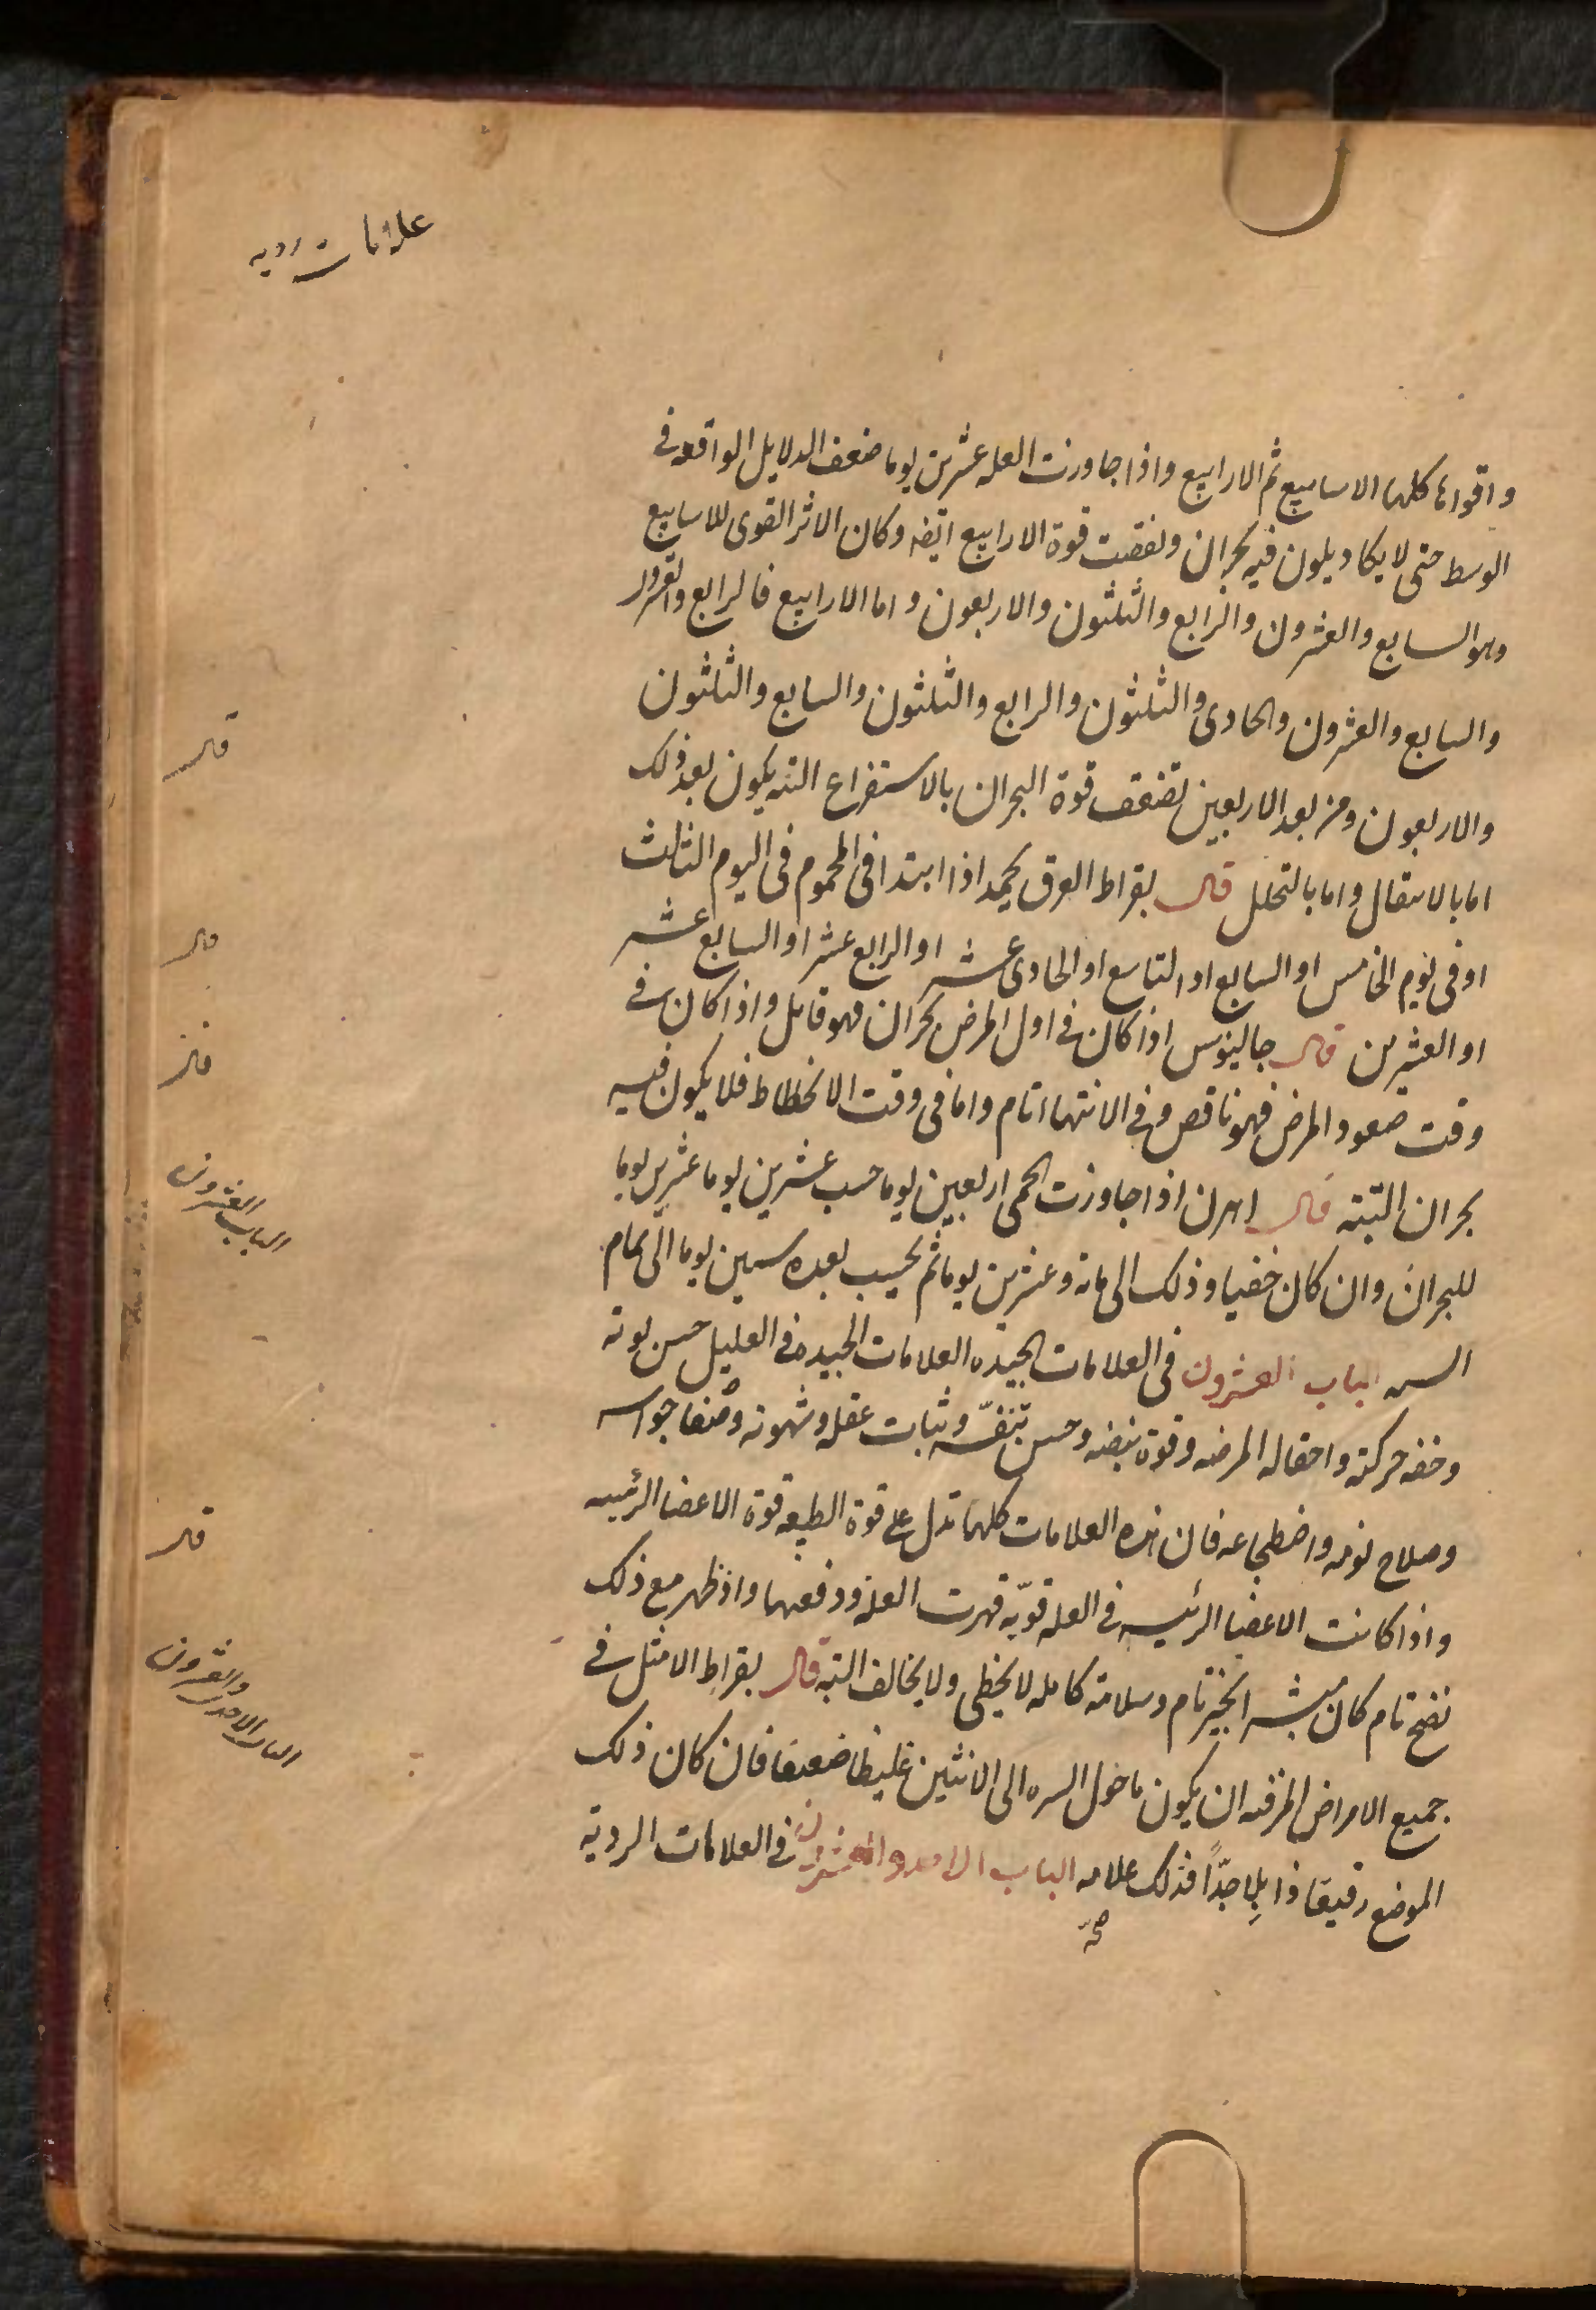 علامات رديه
واقواها كلها الاسابيع ثم الارابيع واذا جاوزت العله عشرين يوما ضعف الدلايل الواقعه فى
الوسط حتى لا يكاد يكون فيه بحران ونقصت قوة الارابيع ايضه وكان الاثر القوى للاسابيع
وهو السابع والعشرون والرابع والثلثون والاربعون واما الارابيع فالرابع والعشرون
والسابع والعشرون والحادى والثلثون والرابع والثلثون والسابع والثلثون
والاربعون ومن بعد الاربعين تضعف قوة البحران بالاستفراغ التــه يكون بعد ذلك
اما بالانتقال واما بالتحلل قال بقراط العرق يحمد اذا ابتدا فى المحموم فى اليوم الثالث
او فى يوم الخامس او السابع او التاسع او الحادى عشر او الرابع عشر او السابع عشر
او العشرين قال جالينوس اذا كان فى اول المرض بحران فهو قاتل واذا كان فى
وقت صعود المرض فهو ناقص وفى الانتهاء تام واما فى وقت الانحطاط فلا يكون فيه
بحران البتة قال اهرن اذا جاوزت الحمى اربعين يوما حسب عشرين يوما عشرين يوما
للبحران وان كان خفيا وذلك الى مائة وعشرين يوما ثم يحسب بعده ستين يوما الى تمام
السنه الباب العشرون فى العلامات الجيده العلامات الجيده فى العليل حسن لونه
وخفه حركته واحتماله المرضه وقوة نبضه وحسن تنفسه وثبات عقله وشهوته وصفا حواسه
وصلاح نومه واضطجاعه فان هذه العلامات كلها تدل على قوة الطبيعه قوة الاعضا الرئيسه
واذا كانت الاعضا الرئيسه فى العله قويّه قهرت العله ودفعتها واذ ظهر مع ذلك
نضج تام كان مبشرا بخير تام وسلامة كامله لا يخطى ولا يخالف البته قال بقراط الامثل فى
جميع الامراض المزمنه ان يكون ما حول السره الى الانثيين غليظا ضعيفا فان كان ذلك
الموضع رقيقا ذابلا جدًّا فذلك علامه الباب الاحد والعشرون فى العلامات الرديّه
صحّ
قال
قال
قال
الباب العشرون
قال
الباب الاحد والعشرون